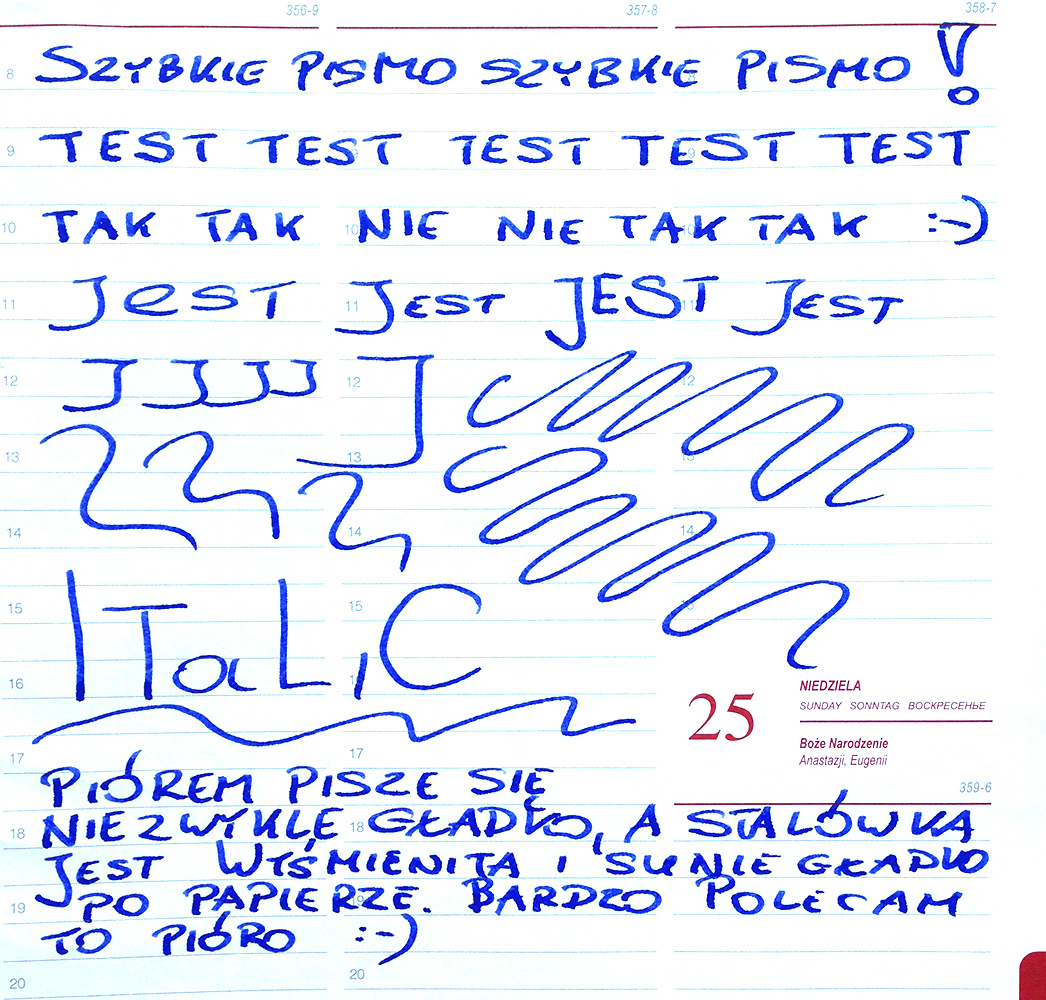 356-9 357-8 358-7
8 SZYBKIE PISMO SZYBKIE PISMO !
9 TEST TEST TEST TEST TEST
10 TAK TAK NIE NIE TAK TAK :-)
11 JEST JEST JEST JEST
12 J J J J J
13
14
15 ITaLiC
16
NIEDZIELA
25 SUNDAY SONNTAG ВОСКРЕСЕНЬЕ
Boże Narodzenie
Anastazji, Eugenii
17
359-6
PIÓREM PISZE SIĘ
18 NIEZWYKLE GŁADKO, A STALÓWKA
JEST WYŚMIENITA I SUNIE GŁADKO
19 PO PAPIERZE. BARDZO POLECAM
TO PIÓRO :-)
20 20